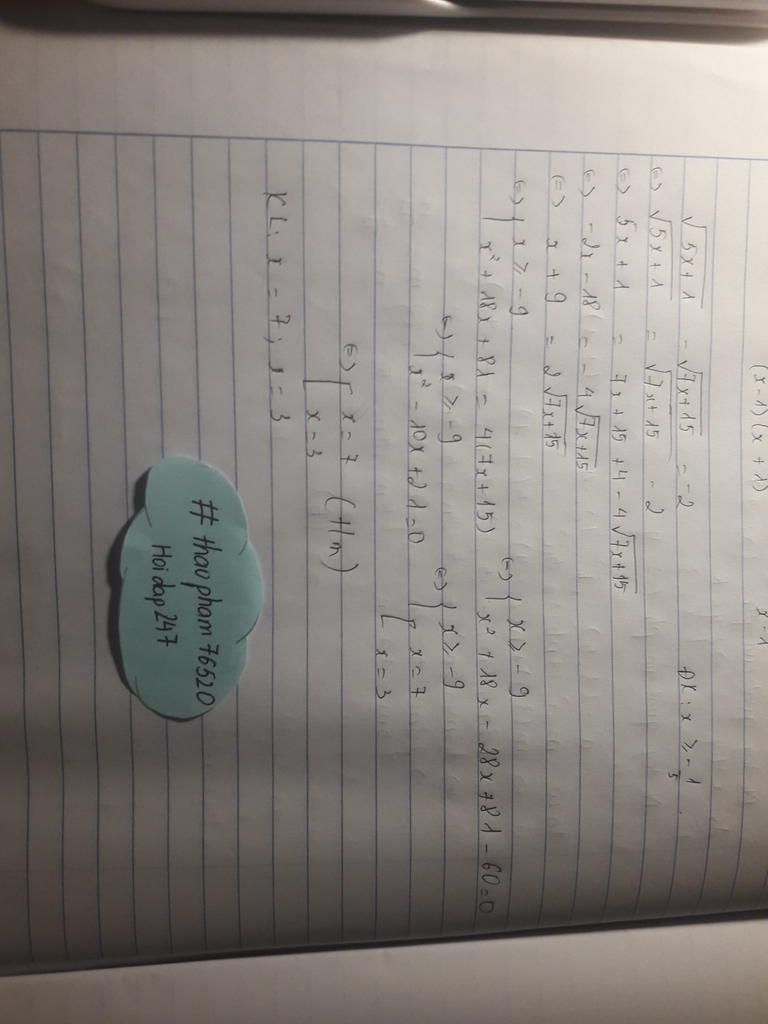 (x-1)(x+1)
x-1
√5x+1 = √7x+15 = -2 ĐK: x ≥ -1/5
⇔ √5x+1 = √7x+15 - 2
⇔ 5x+1 = 7x+15+4-4√7x+15
⇔ -2x-18 = -4√7x+15
⇔ x+9 = 2√7x+15
⇔ { x ≥ -9
x²+18x+81 = 4(7x+15)
⇔ { x ≥ -9
x²+18x-28x+81-60=0
⇔ { x ≥ -9
x²-10x+21=0
⇔ { x ≥ -9
[ x=7
x=3
⇔ [ x=7
x=3 (t/m)
KL: x=7; x=3
# thaopham76520
Hoidap247